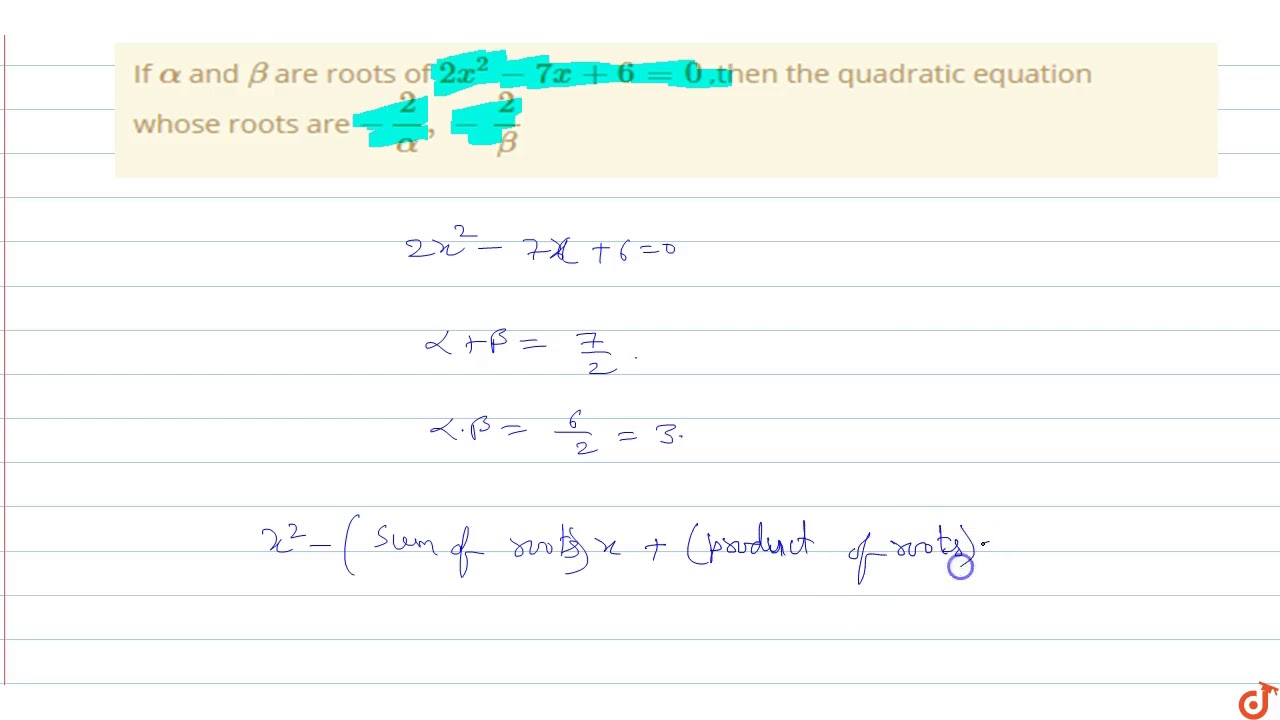 If α and β are roots of 2x² − 7x + 6 = 0 ,then the quadratic equation
whose roots are −2/α, −2/β
2x² − 7x + 6 = 0
α + β = 7/2 .
α.β = 6/2 = 3.
x² − (sum of roots)x + (product of roots).